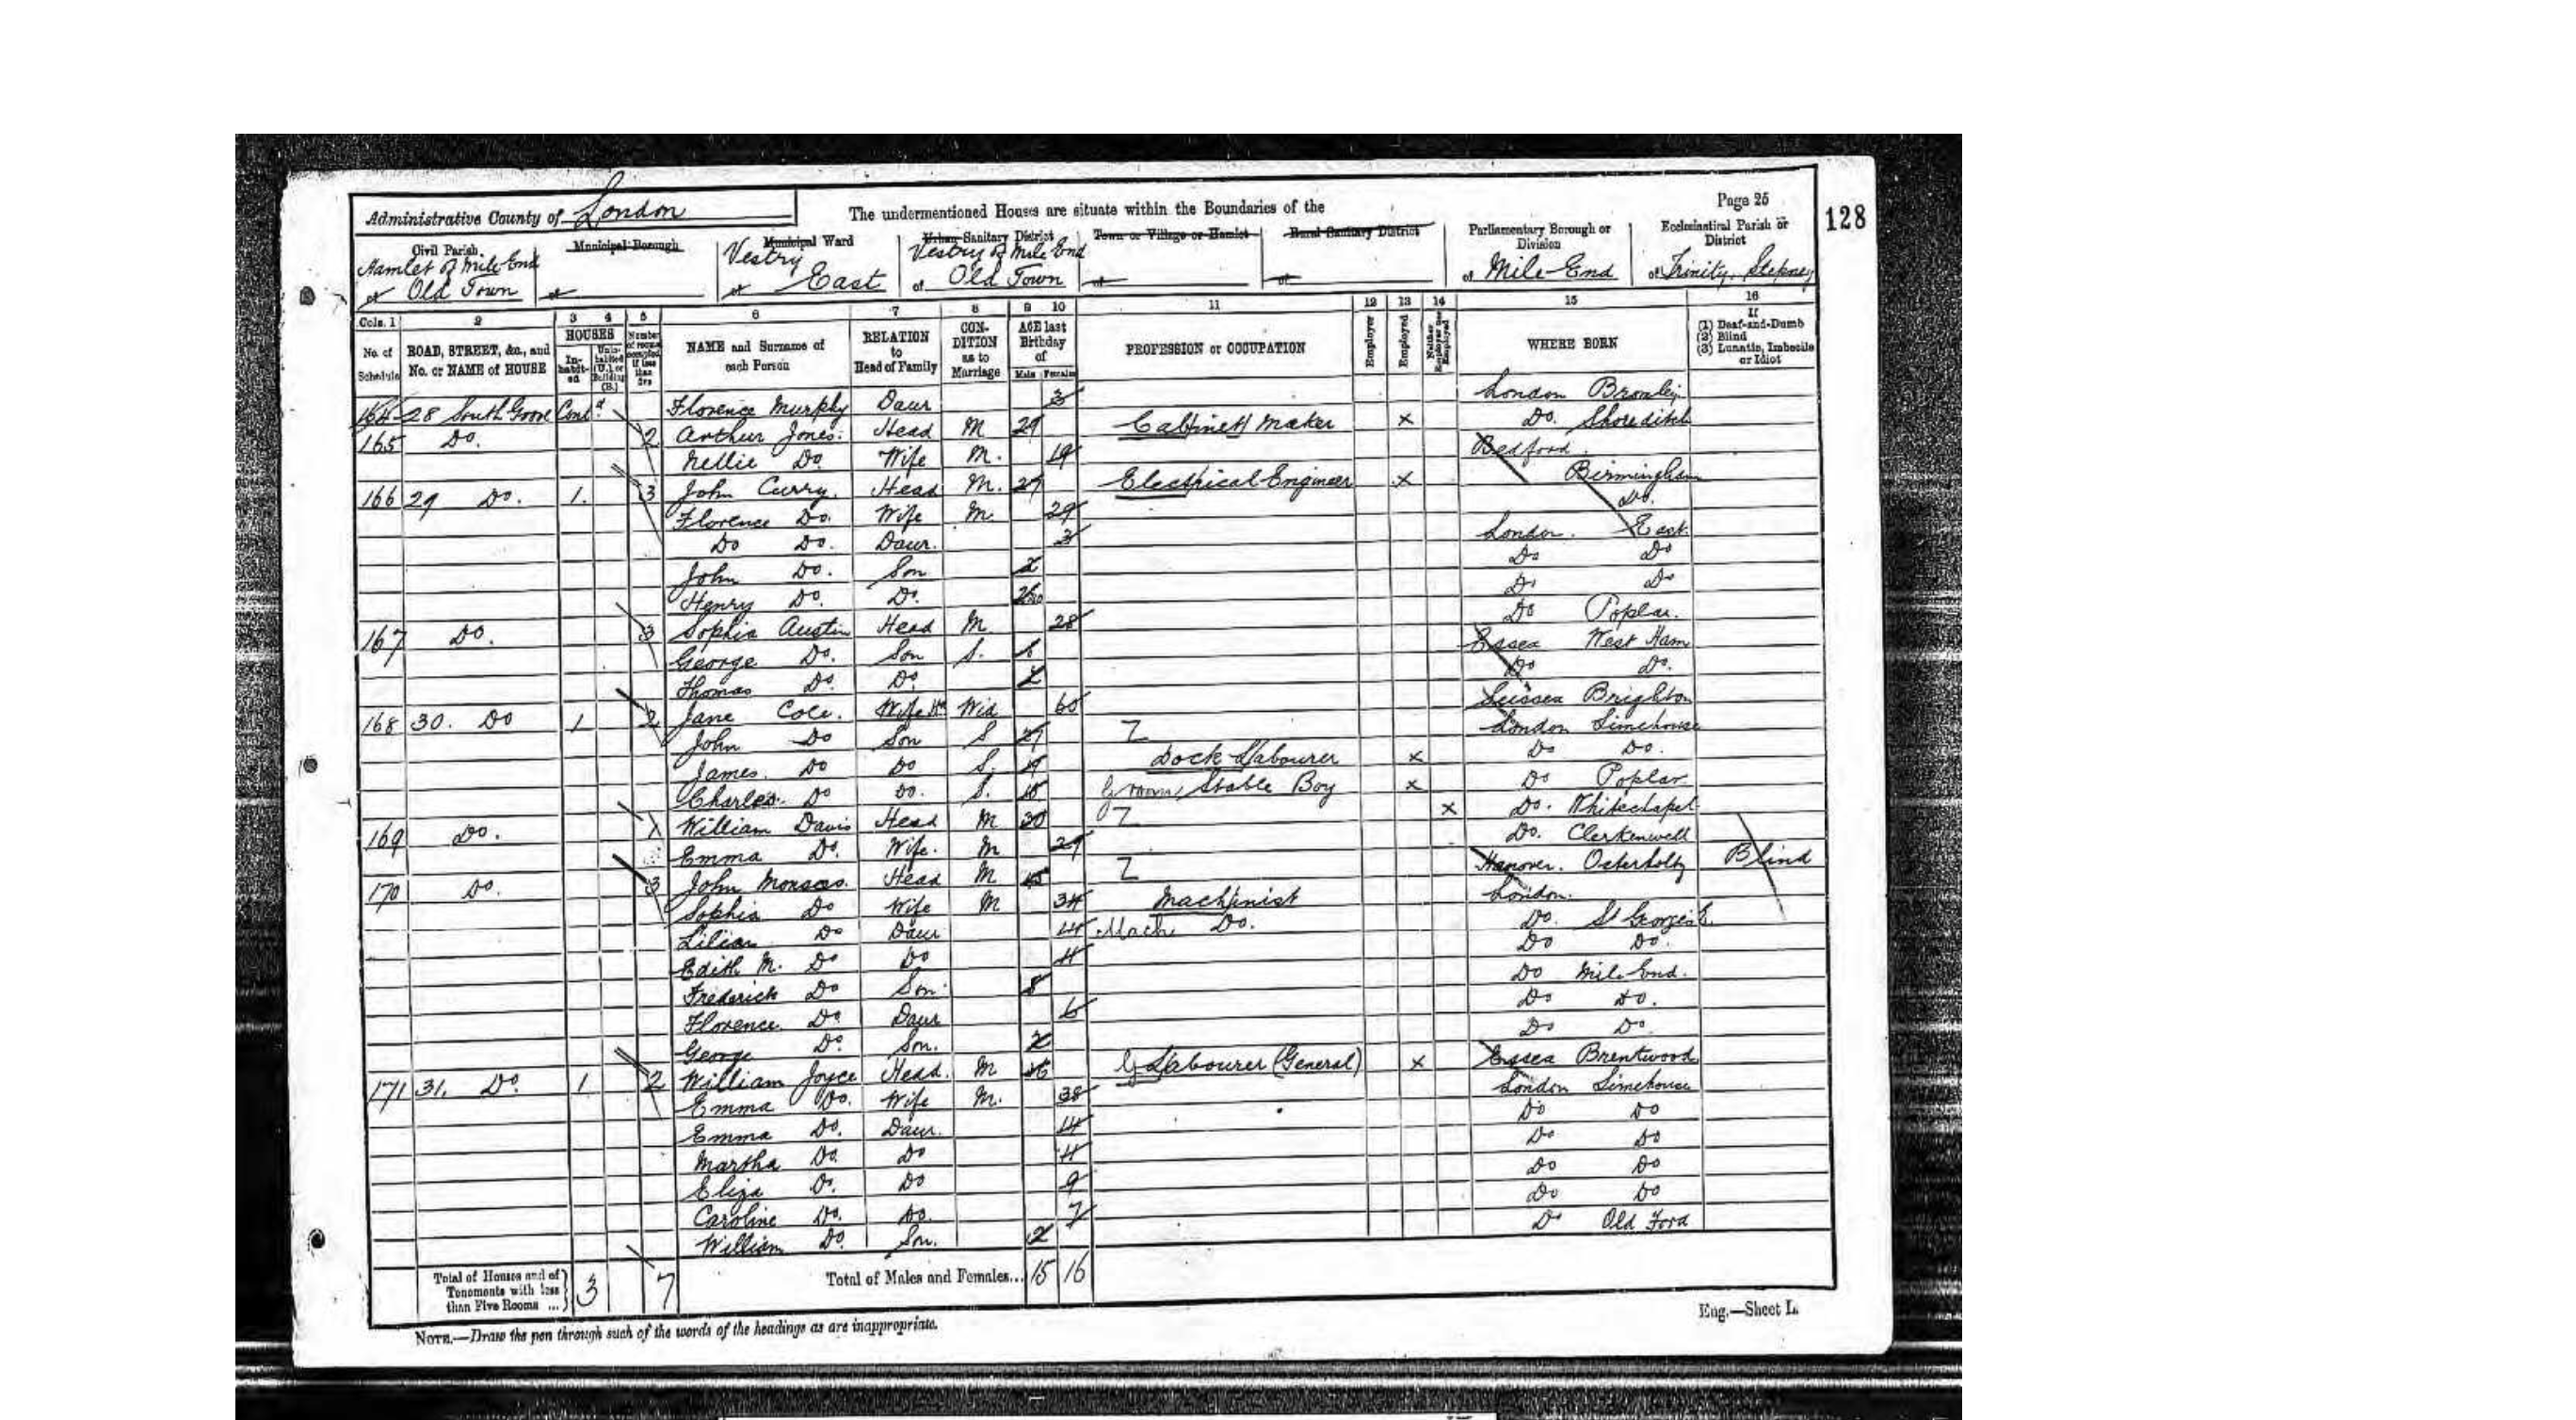 Administrative County of London
The undermentioned Houses are situate within the Boundaries of the
Page 25
128
Civil Parish
Hamlet of Mile End
of Old Town
Municipal Borough
of
Municipal Ward
Vestry
of East
Urban Sanitary District
Vestry of Mile End
of Old Town
Town or Village or Hamlet
of
Rural Sanitary District
of
Parliamentary Borough or Division
of Mile End
Ecclesiastical Parish or District
of Trinity, Stepney
Cols. 1 2 3 4 5 6 7 8 9 10 11 12 13 14 15 16
No. of Schedule
ROAD, STREET, &c., and No. or NAME of HOUSE
HOUSES
In-habit-ed
Unin-habited (U.) or Building (B.)
Number of rooms occupied if less than five
NAME and Surname of each Person
RELATION to Head of Family
CON-DITION as to Marriage
AGE last Birthday of
Males Females
PROFESSION or OCCUPATION
Employer
Employed
Neither Employer nor Employed
WHERE BORN
If
(1) Deaf-and-Dumb
(2) Blind
(3) Lunatic, Imbecile or Idiot
164 28 South Grove Contd Florence Murphy Daur 3 London Bromley
165 Do. 2 Arthur Jones Head M 29 Cabinet Maker x Do. Shoreditch
Nellie Do Wife M. 19 Bedford
166 29 Do. 1. 3 John Curry. Head M. 29 Electrical Engineer x Birmingham
Florence Do. Wife M 29 Do.
Do Do. Daur. 3 London. East
John Do. Son 2 Do Do
Henry Do. Do. Do Do
167 Do. 3 Sophia Austin Head M 28 Do Poplar.
George Do. Son S. Essex West Ham
Thomas Do. Do Do Do.
168 30. Do 1 2 Jane Cole. Wife Hd Wid 60 Sussex Brighton
John Do Son S London Limehouse
James. Do Do S. 19 Dock Labourer x Do Do.
Charles. Do Do. S. 15 Groom Stable Boy x Do Poplar
169 Do. 1 William Davis Head M 30 x Do. Whitechapel
Emma Do. Wife. M 29 Do. Clerkenwell
170 Do. 3 John Head M 45 Hanover. Blind
Sophia Do Wife M 34 Machinist London.
Lilian Do Daur 14 Mach Do. Do. St Georges E.
Edith M. Do Do 11 Do Do.
Frederick Do Son 8 Do Mile End.
Florence Do Daur 6 Do Do.
George Do. Son. 2 Do Do
171 31. Do. 1 2 William Joyce Head. M 46 G Labourer (General) x Essex Brentwood
Emma Do. Wife M. 38 London Limehouse
Emma Do. Daur. 14 Do Do
Martha Do. Do 11 Do Do
Eliza Do. Do 9 Do Do
Caroline Do. Do. 7 Do Do
William Do. Son. 2 Do Old Ford
Total of Houses and of Tenements with less than Five Rooms ... 3 7
Total of Males and Females... 15 16
NOTE.—Draw the pen through such of the words of the headings as are inappropriate.
Eng.—Sheet L.